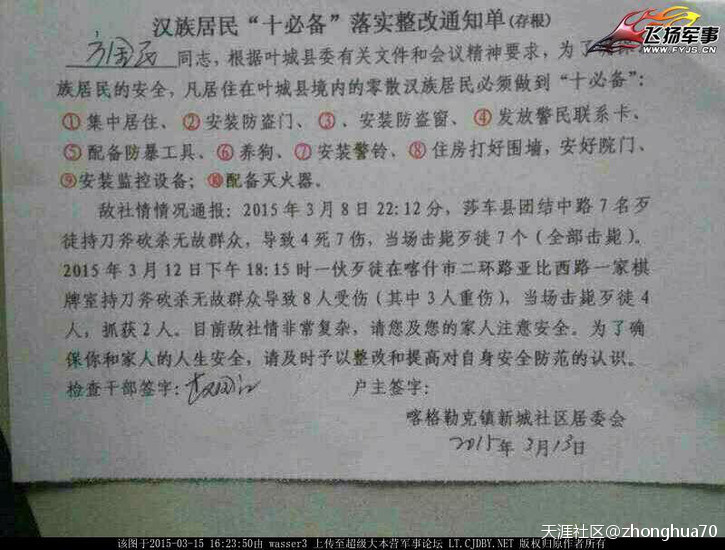 飞扬军事
www.FYJS.cn
汉族居民“十必备”落实整改通知单(存根)
同志，根据叶城县委有关文件和会议精神要求，为了
族居民的安全，凡居住在叶城县境内的零散汉族居民必须做到“十必备”：
①集中居住、②安装防盗门、③、安装防盗窗、④发放警民联系卡、
⑤配备防暴工具、⑥养狗、⑦安装警铃、⑧住房打好围墙，安好院门、
⑨安装监控设备；⑩配备灭火器。
敌社情情况通报：2015年3月8日22:12分，莎车县团结中路7名歹
徒持刀斧砍杀无故群众，导致4死7伤，当场击毙歹徒7个（全部击毙）。
2015年3月12日下午18:15时一伙歹徒在喀什市二环路亚比西路一家棋
牌室持刀斧砍杀无故群众导致8人受伤（其中3人重伤），当场击毙歹徒4
人，抓获2人。目前敌社情非常复杂，请您及您的家人注意安全。为了确
保你和家人的人生安全，请及时予以整改和提高对自身安全防范的认识。
检查干部签字： 户主签字：
喀格勒克镇新城社区居委会
2015年3月13日
天涯社区@zhonghua70
该图于2015-03-15 16:23:50由 wasser3 上传至超级大本营军事论坛 LT.CJDBY.NET 版权归原作者所有